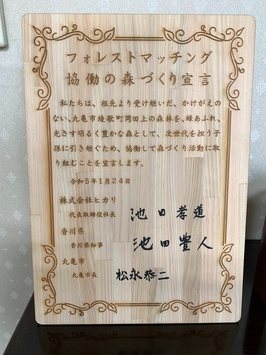 フォレストマッチング
協働の森づくり宣言
私たちは、祖先より受け継いだ、かけがえの
ない、丸亀市綾歌町岡田上の森林を、緑あふれ、
光さす明るく豊かな森として、次世代を担う子
孫に引き継ぐため、協働して森づくり活動に取
り組むことを宣言します。
令和5年1月24日
株式会社ヒカリ
代表取締役社長 池田孝道
香川県
香川県知事 池田豊人
丸亀市
丸亀市長 松永恭二